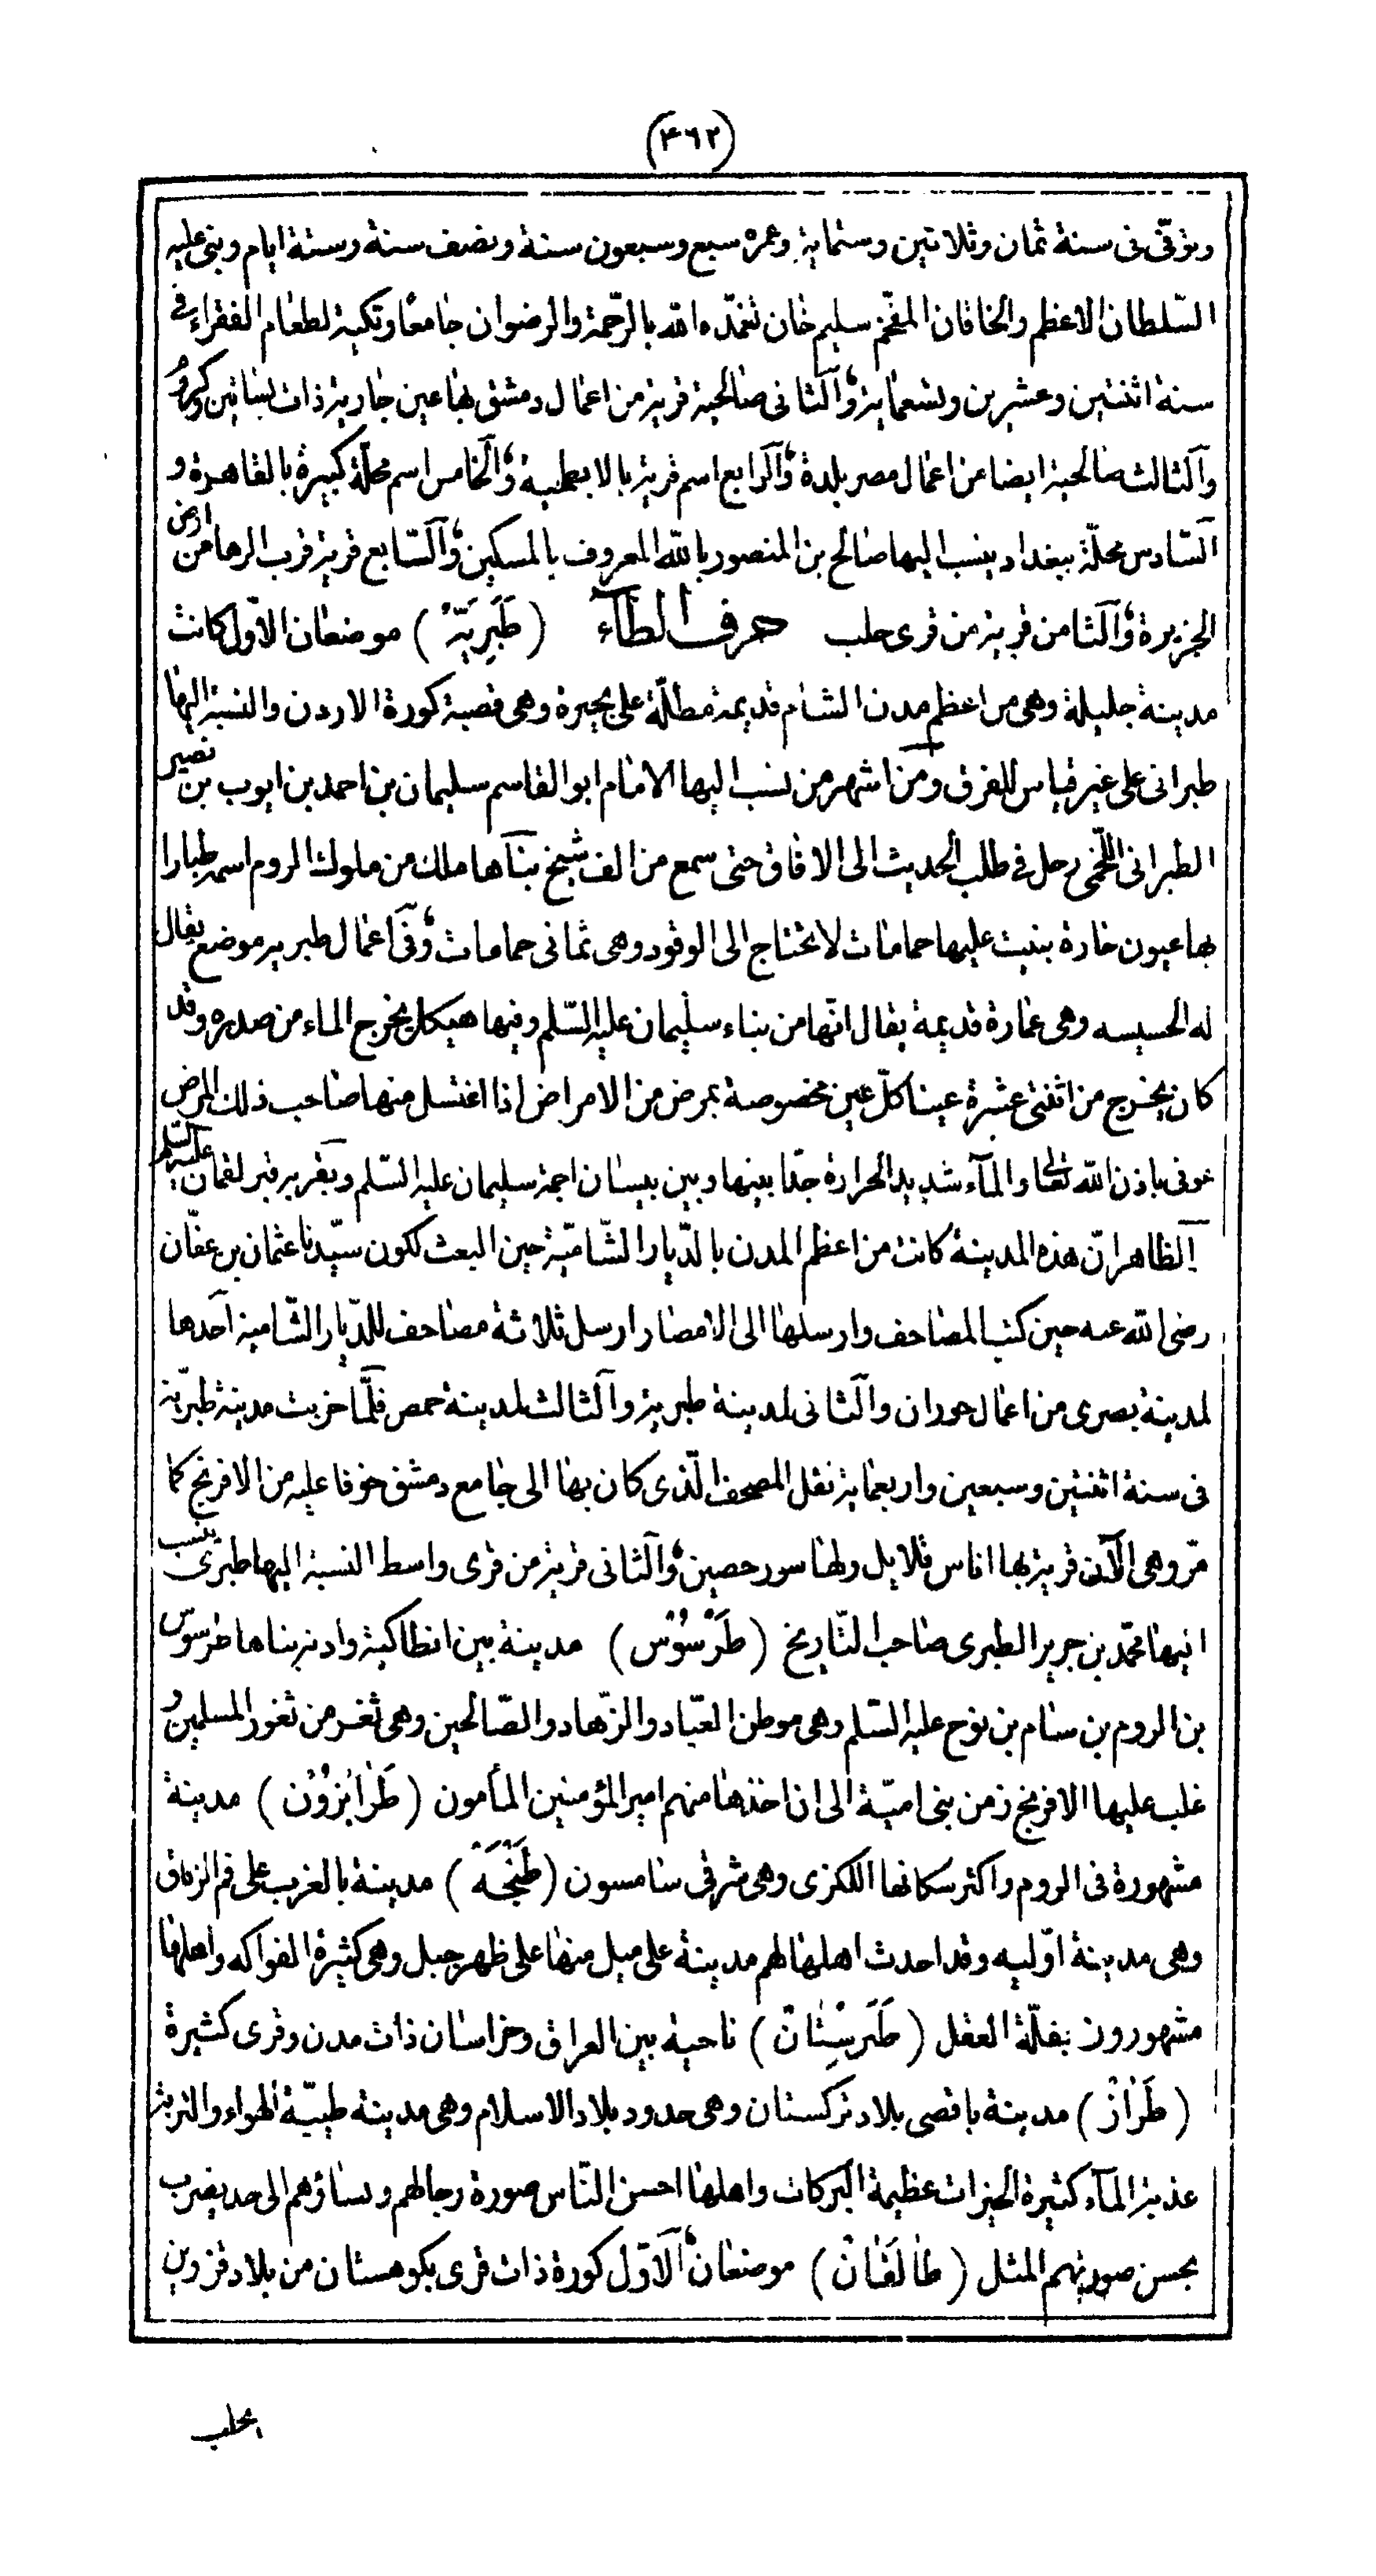 (٤٦٢)
وتوفى فى سنة ثمان وثلاثين وستماية وعمره سبع وسبعون سنة ونصف سنة وستة ايام وبنى عليه
السّلطان الاعظم والخاقان المفخّم سليم خان تغمّده الله بالرّحمة والرضوان جامعًا وتكية لطعام الفقراء فى
سنة اثنتين وعشرين وتسعماية والثانى صالحية قرية من اعمال دمشق بها عين جارية ذات بساتين وكروم
والثالث صالحية ايضا من اعمال مصر بلدة والرابع اسم قرية بالابطحية والخامس اسم محلّة كبيرة بالقاهرة و
السّادس محلّة ببغداد ينسب اليها صالح بن المنصور بالله المعروف بالمسكين والسّابع قرية قرب الرها من ارض
الجزيرة والثامن قرية من قرى حلب حرف الطآء (طَبَرِيَّهْ) موضعان الاوّل كانت
مدينة جليلة وهى من اعظم مدن الشام قديمة مطلّة على بحيرة وهى قصبة كورة الاردن والنسبة اليها
طبرانى على غير قياس للفرق ومن اشهر من نسب اليها الامام ابو القاسم سليمان بن احمد بن ايوب بن نصير
الطبرانى اللّخمى رحل فى طلب الحديث الى الافاق حتى سمع من الف شيخ بناها ملك من ملوك الروم اسمه طبارا
بها عيون حارة بنيت عليها حمامات لا تحتاج الى الوقود وهى ثمانى حمامات وفى اعمال طبرية موضع يقال
له الحسيسه وهى عمارة قديمة يقال انّها من بناء سليمان عليه السّلم وفيها هيكل يخرج الماء من صدره وقد
كان يخرج من اثنتى عشرة عينا كلّ عين مخصوصة بمرض من الامراض اذا اغتسل منها صاحب ذلك المرض
عوفى باذن الله تعالى والمآء شديد الحرارة جدّا بينها وبين بيسان اجمة سليمان عليه السّلم وبقربه قبر لقمان عليه السّلم
الظاهر انّ هذه المدينة كانت من اعظم المدن بالدّيار الشّاميّة حين البعث لكون سيّدنا عثمان بن عفّان
رضى الله عنه حين كتب المصاحف وارسلها الى الامصار ارسل ثلاثة مصاحف للدّيار الشّامية احدها
لمدينة بصرى من اعمال حوران والثانى لمدينة طبرية والثالث لمدينة حمص فلمّا خربت مدينة طبريّة
فى سنة اثنتين وسبعين واربعماية نقل المصحف الّذى كان بها الى جامع دمشق خوفا عليه من الافرنج كما
مرّ وهى الآن قرية بها اناس قلايل ولها سور حصين والثانى قرية من قرى واسط النسبة اليها طبرى ينسب
اليها محمّد بن جرير الطبرى صاحب التّاريخ (طَرْسُوْسْ) مدينة بين انطاكية وادنه بناها طرسوس
بن الروم بن سام بن نوح عليه السّلم وهى موطن العبّاد والزّهاد والصّالحين وهى ثغر من ثغور المسلمين و
غلب عليها الافرنج زمن بنى اميّة الى ان اخذها منهم امير المؤمنين المأمون (طَرَابْزُوْن) مدينة
مشهورة فى الروم واكثر سكانها اللكزى وهى شرقى سامسون (طَنْجَهْ) مدينة بالغرب على فم الزقاق
وهى مدينة اوّليه وقد احدث اهلها لهم مدينة على ميل منها على ظهر جبل وهى كثيرة الفواكه واهلها
مشهورون بقلّة العقل (طَبَرِسْتَانْ) ناحية بين العراق وخراسان ذات مدن وقرى كثيرة
(طَرَازْ) مدينة باقصى بلاد تركستان وهى حدود بلاد الاسلام وهى مدينة طيّبة الهواء والتربة
عذبة المآء كثيرة الخيرات عظيمة البركات واهلها احسن النّاس صورة رجالهم ونساؤهم الى حد يضرب
بحسن صورتهم المثل (طَالَقَانْ) موضعان الاوّل كورة ذات قرى بكوهستان من بلاد قزوين